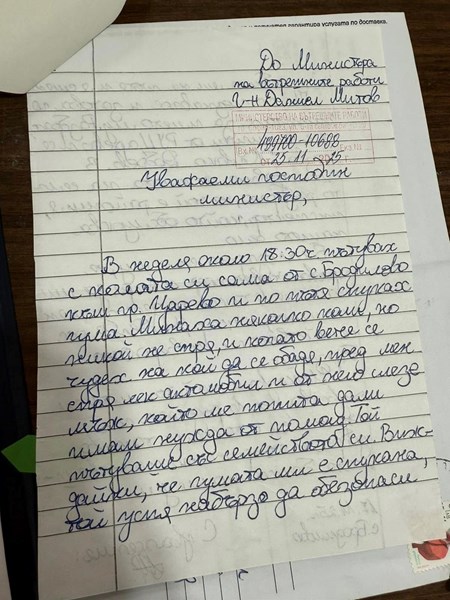 гарантира услугата по доставка.
До Министъра
на вътрешните работи
г-н Даниел Митов
МИНИСТЕРСТВО НА ВЪТРЕШНИТЕ РАБОТИ
25.11.
Уважаеми господин
министър,
В неделя около 18:30ч пътувах
с колата си сама от с. Бродилово
към гр. Царево и по пътя спуках
гума. Минаха няколко коли, но
никой не спря, и когато вече се
чудех на кой да се обадя, пред мен
спря лек автомобил и от него слезе
мъж, който ме попита дали
имам нужда от помощ. Той
пътуваше със семейството си. Виж-
дайки, че гумата ми е спукана,
той успя набързо да обезопаси